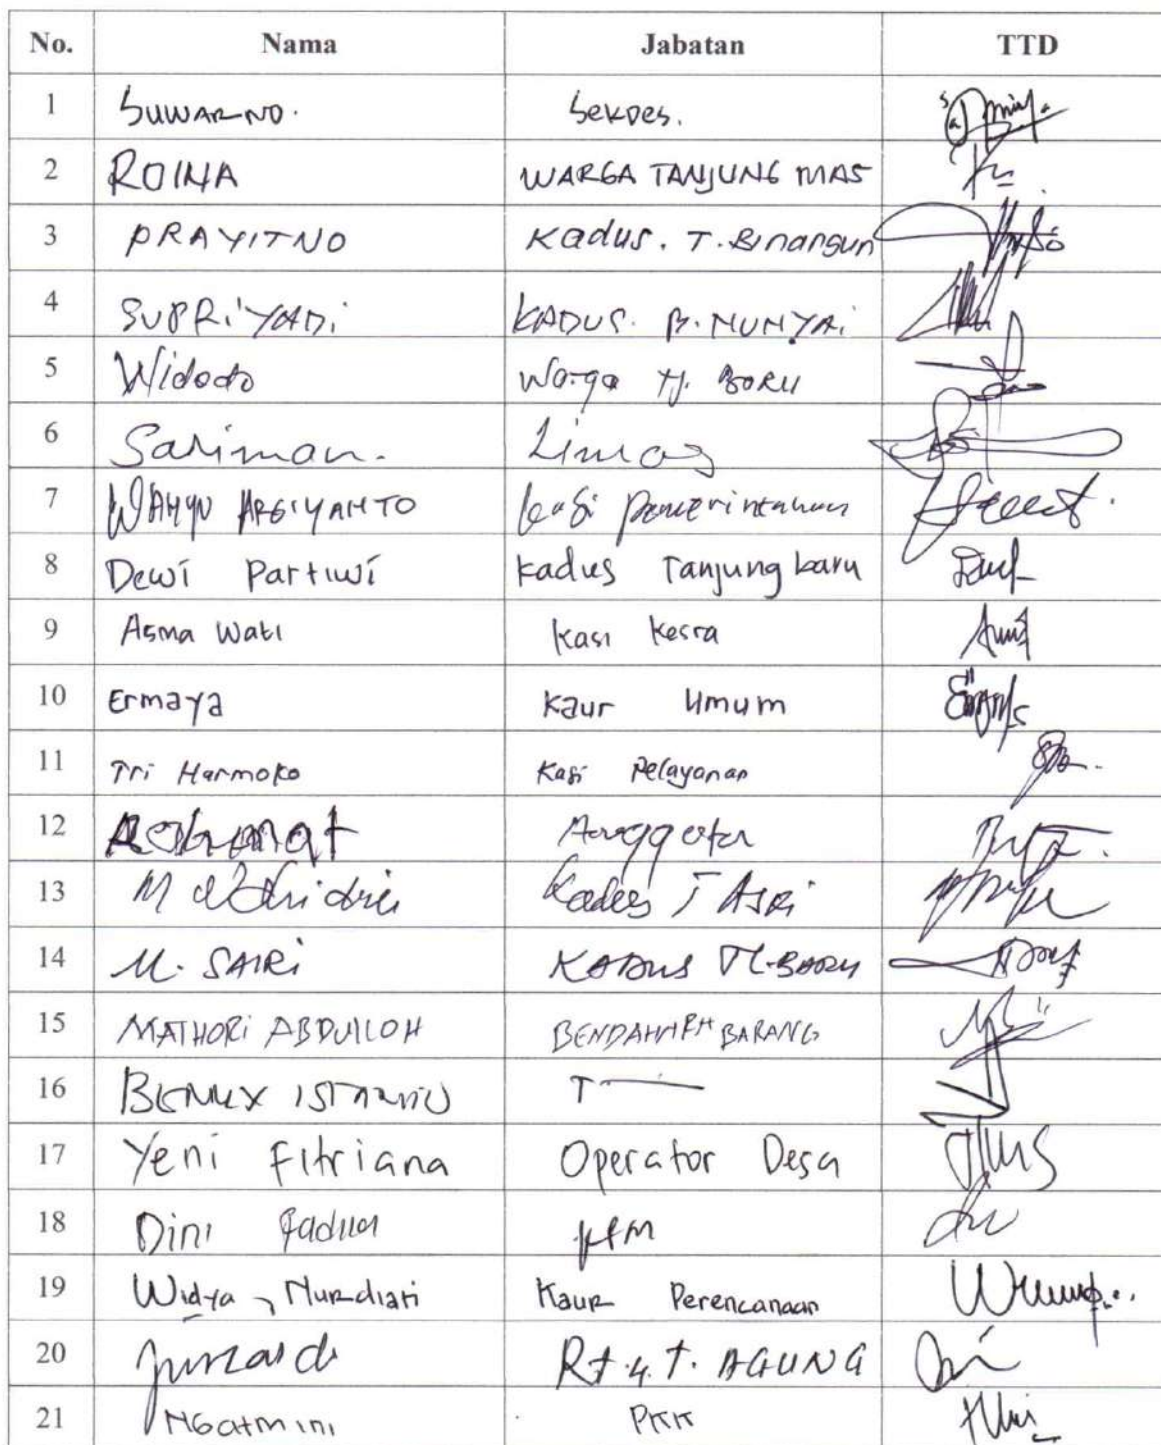 No. Nama Jabatan TTD
1 Suwarno. Sekdes.
2 ROINA WARGA TANJUNG MAS
3 PRAYITNO Kadus. T. Binangun
4 SUPRiYADi KADUS. B. NUNYAi
5 Widodo Warga TJ. BARU
6 Sariman. Linmas
7 WAHYU ARGIYANTO Kasi Pemerintahan
8 Dewi Partiwi Kadus Tanjung baru
9 Asma Wati Kasi Kesra
10 Ermaya Kaur Umum
11 Tri Harmoko Kasi Pelayanan
12 Rohmat Anggota
13 M Kadus T ASRi
14 M. SAIRi KADUS BARU
15 MATHORi ABDULLOH BENDAHARA BARANG
16
17 Yeni Fitriana Operator Desa
18 Dini
19 Widya Nurdiati Kaur Perencanaan
20 Rt. 4. T. AGUNG
21 Ngatmini PKK